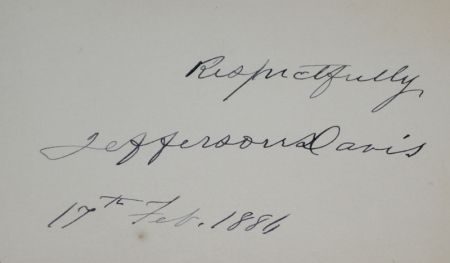 Respectfully,
Jefferson Davis
17th Feb. 1886